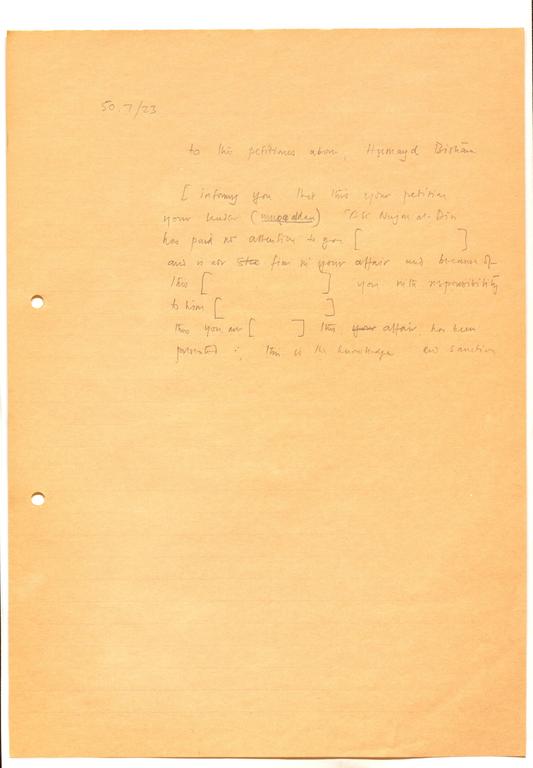 50.7/23
to this petitioner above, Humayd Bishāra
[ informing you that this your petition
your leader (muqaddam) Najm al-Din
has paid no attention to you [ ]
and is not firm in your affair and because of
this [ ] you with responsibility
to him [ ]
this you are [ ] this your affair has been
presented this is the knowledge and sanction